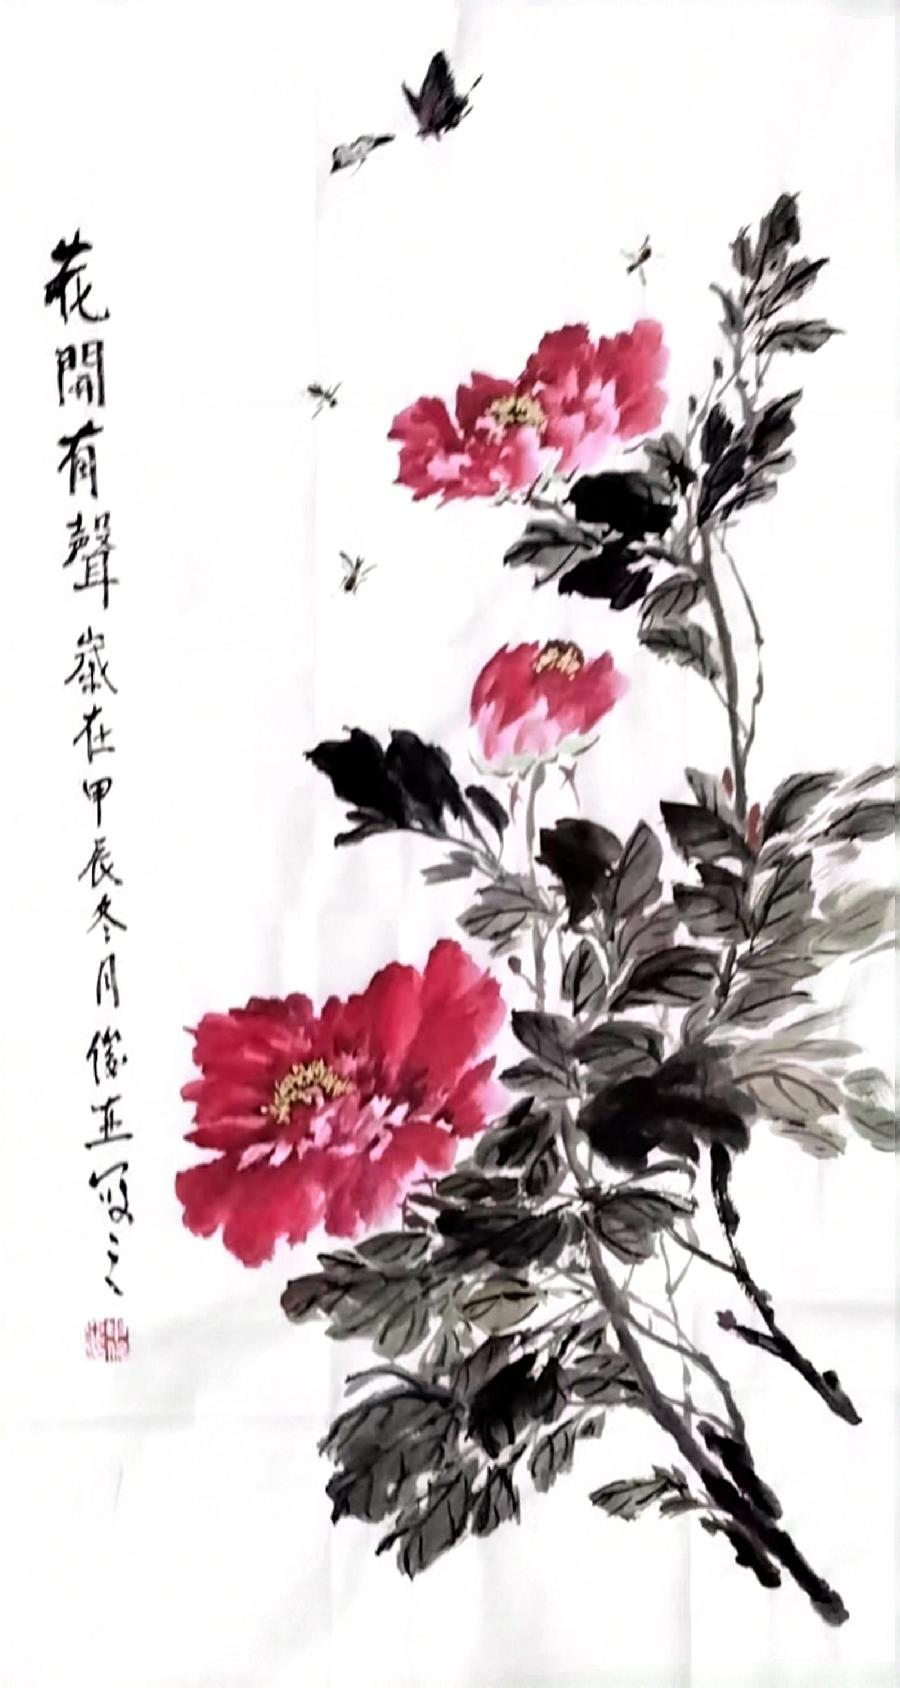 花開有聲歲在甲辰冬月俊业寫之